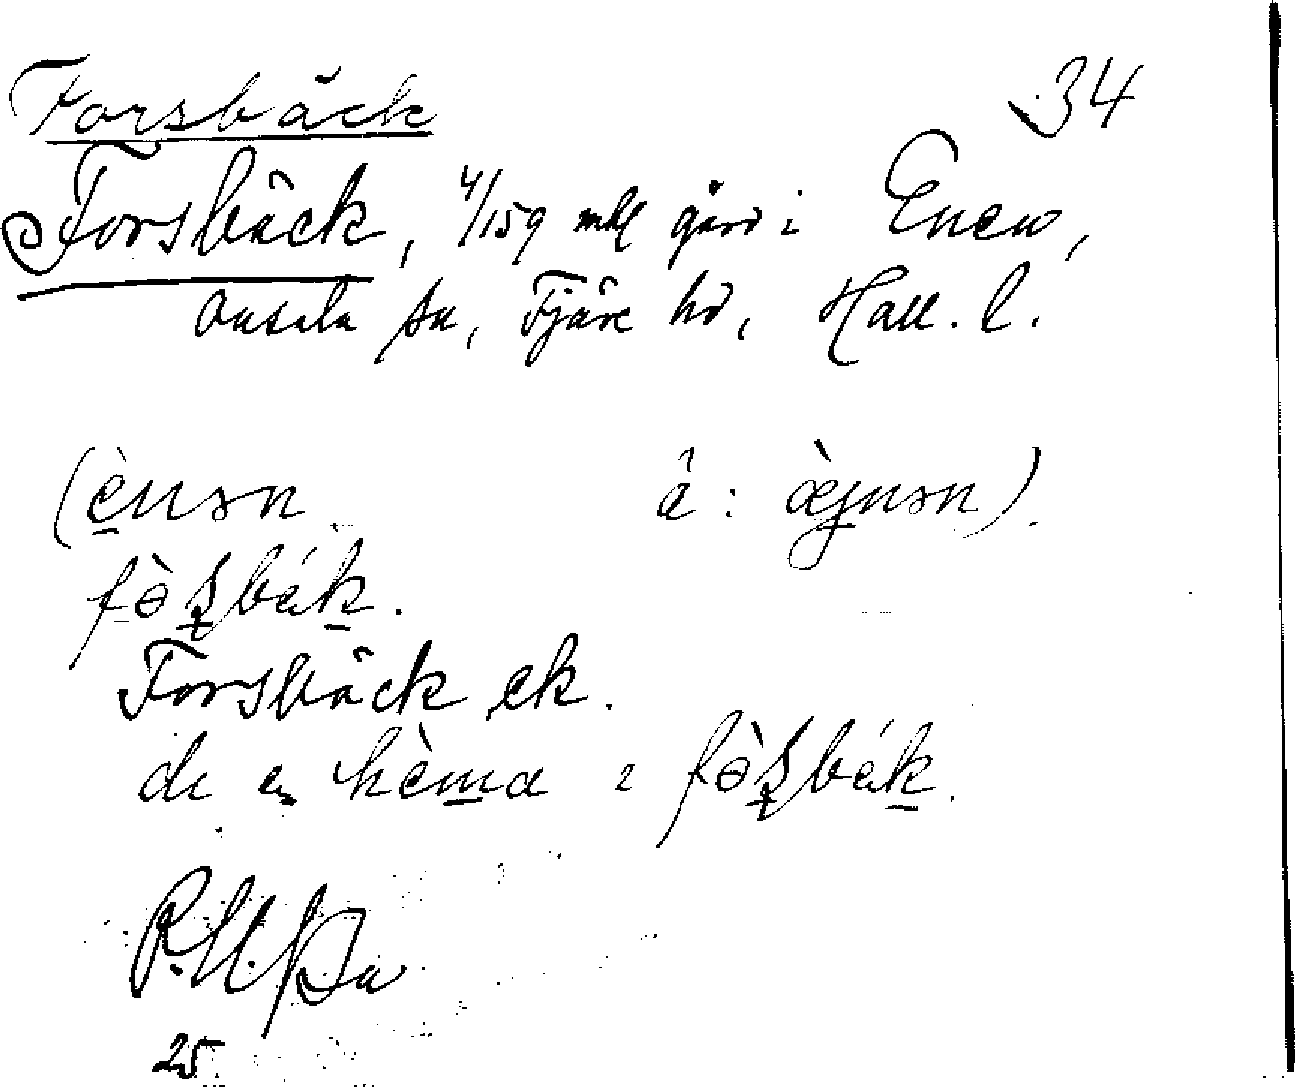 Forsbäck 34
Forsbäck, 4/159 mtl gård i Enen,
Onsala sn, Fjäre hd, Hall. l.
(ènən â : æ̀jnən).
fə̀ʂbák.
Forsbäck, ek.
di hèma i fə̀ʂbák.
25